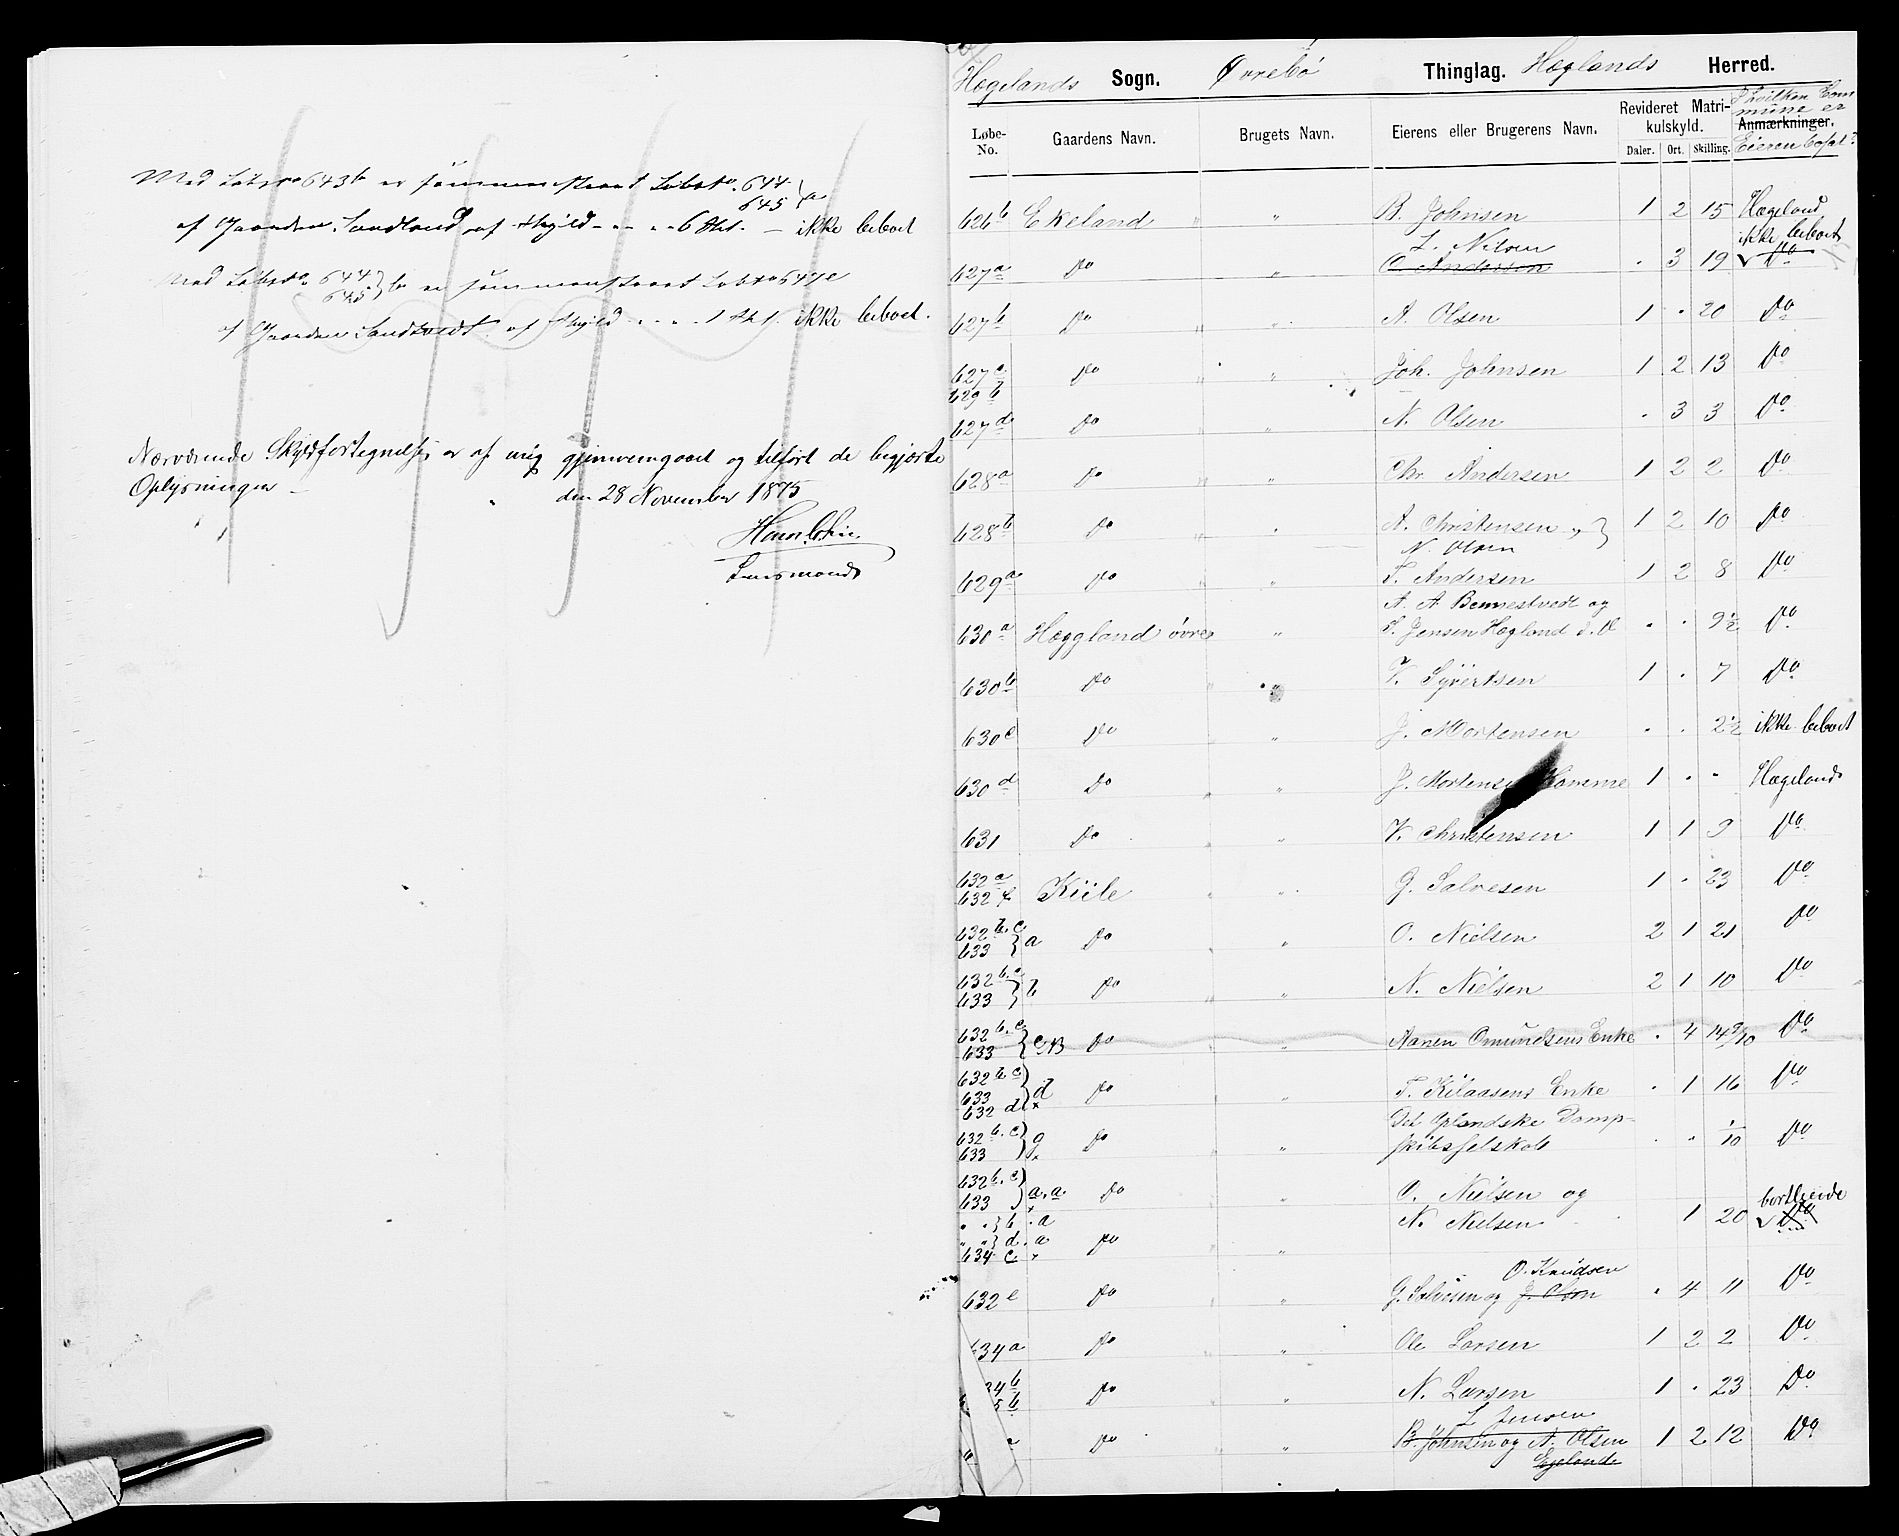 Med Løbeno 643b er sammenslaaet Løbeno. 644 645 } a
af Gaarden Sandland af Skyld - - - 6 Skl. - ikke beboet
Med Løbeno. 644 645 } b er sammenslaaet Løbeno 644c
af Gaarden Sandtvedt af Skyld - - - 1 Skl. ikke beboet.
Nærværende Skyldfortegnelse er af mig gjennemgaaet og tilført de begjærte
Oplysninger -
den 28 November 1875
Lensmand
Hægelands Sogn. Øvrebø Thinglag. Hæglands Herred.
Løbe-No. Gaardens Navn. Brugets Navn. Eierens eller Brugerens Navn. Revideret Matri-kulskyld. Daler. Ort. Skilling. Anmærkninger. I hvilken Com mune er Eieren bosat?
626b Ekeland " " B. Johnsen 1 2 15 Hægeland
L. Nilsen ikke beboet
627a Do " O. Andersen . 3 19 Do
627b Do " " A. Olsen 1 . 20 Do
627c Do " " Joh. Johnsen 1 2 13 Do
629b
627d Do " " N. Olsen . 3 3 Do
628a Do " " Chr. Andersen 1 2 2 Do
628b Do " " A. Christensen " } 1 2 10 Do
N. Olsen
629a Do " " T. Andersen 1 2 8 Do
A. A. Bennestvedt og
630a Hæggland øvre " T. Jensen Hægland . . 9½ Do
630b Do " " V. Syvertsen 1 . 7 Do
630c Do " J. Mortensen . . 2½ ikke beboet
630d Do " " J. Mortensen Homme 1 . . Hægeland
631 Do " " V. Christensen 1 1 9 Do
632a
632f Kiile " " G. Salvesen 1 . 23 Do
632b.c
633 } a Do " " O. Nielsen 2 1 21 Do
632b.c
633 } b Do " " N. Nielsen 2 1 10 Do
632b.c
633 } c Do " Aanen Omundsens Enke . 4 14 9/10 Do
632b.c
633 } d Do " T. Kilaasens Enke . 1 16 Do
632d x
Det Oplandske Damp-
632b.c
633 } g Do " skibsselskab . " 1/10 Do
632b.c
633 } a.a Do " O. Nielsen og bortleiede
" " } b.a N. Nielsen 1 20 Do
" " } d.a Do " "
634c x
O. Knudsen
632e Do " " G. Salvesen og J. Olsen . 4 11 Do
634a Do " " Ole Larsen 1 2 2 Do
34b
5b Do " " N. Larsen 1 . 23 Do
L. Jensen
Do " " B. Johnsen og A. Olsen 1 2 12 Do
Egelands